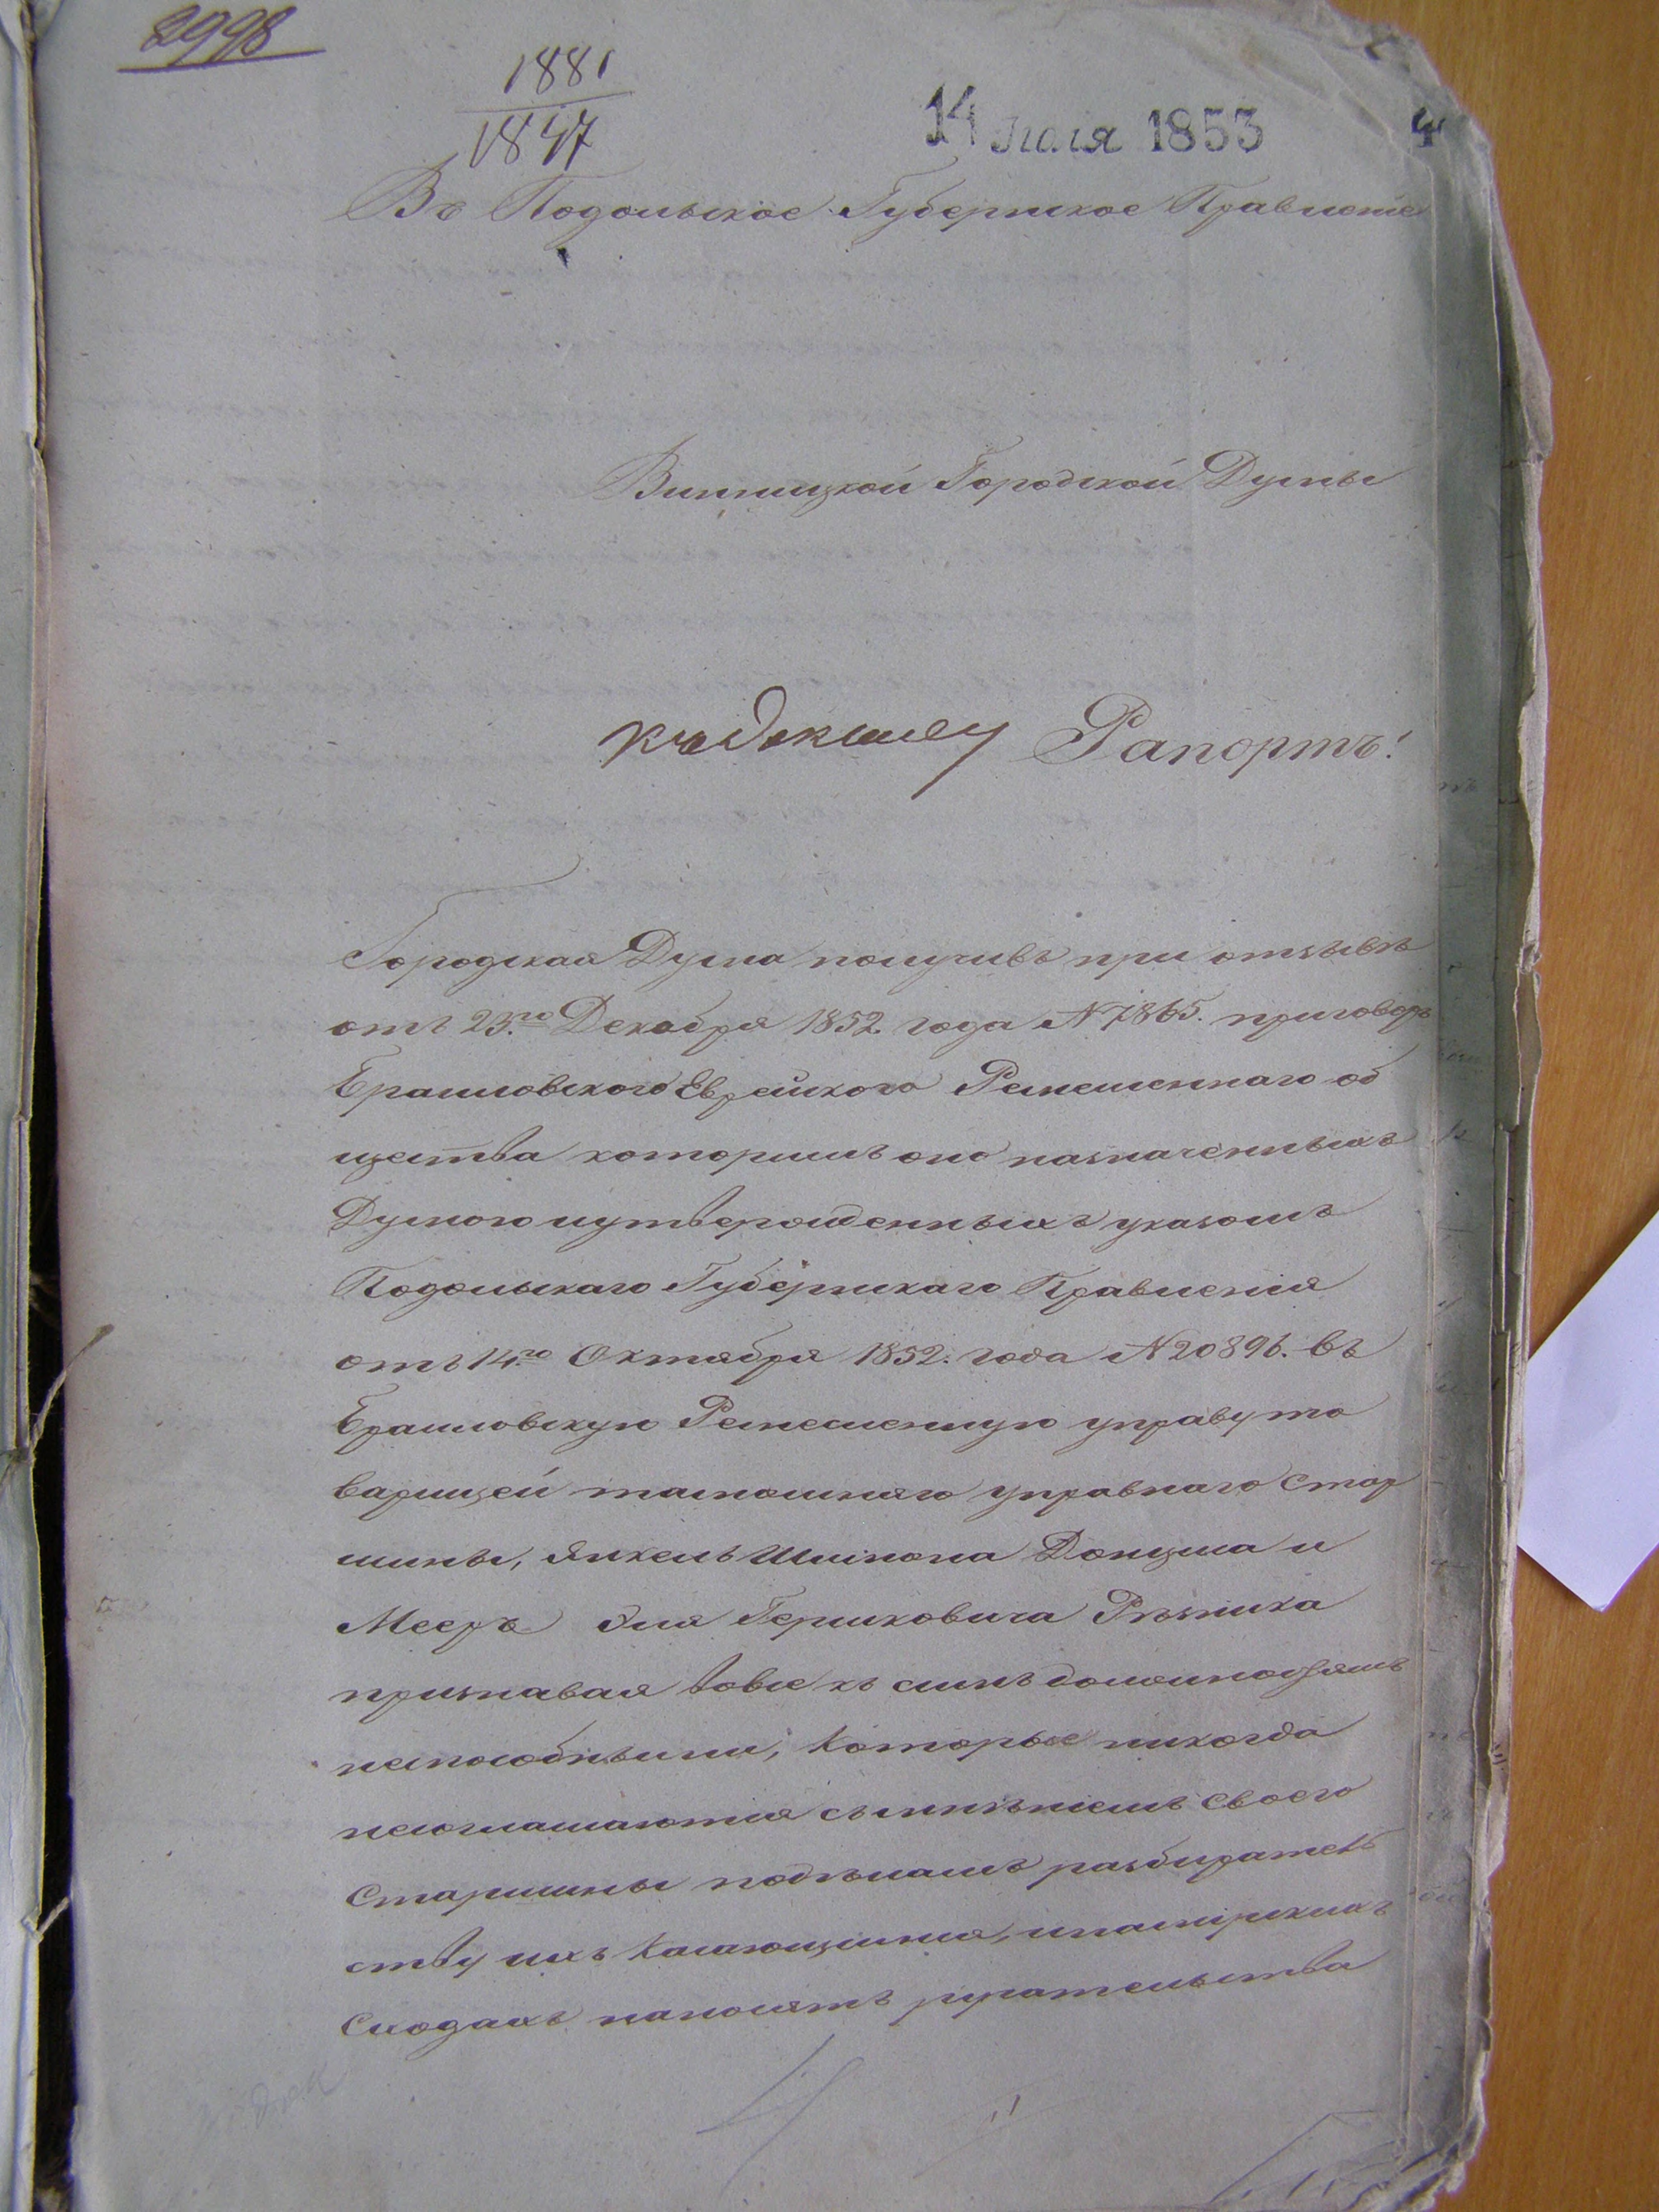 2998
1881
1847
14 Июля 1853
4
Въ Подольское Губернское Правленіе
Винницкой Городской Думы
Рапортъ!
Городская Дума получивъ при отзывѣ
отъ 23го Декабря 1852 года №7865. приговоръ
Браиловского Еврейского Ремесленнаго об
щества которимъ оно назначенныхъ
Думою иутвержденныхъ указомъ
Подольскаго Губернскаго Правленія
отъ 14го Октября 1852. года №20896. въ
Браиловскую Ремесленную управу то
варищей тамошняго управнаго Стар
шины, Янкель Шмінона Донциса и
Мееръ Эля Гершковича Рѣзника
признавая вовсе къ симъ должностямъ
неспособными, которые никогда
несоглашаются съ мнѣніемъ своего
Старшины подѣламъ разбиратель
ству ихъ касающимся, и намірскихъ
Сходахъ наносятъ ругательства